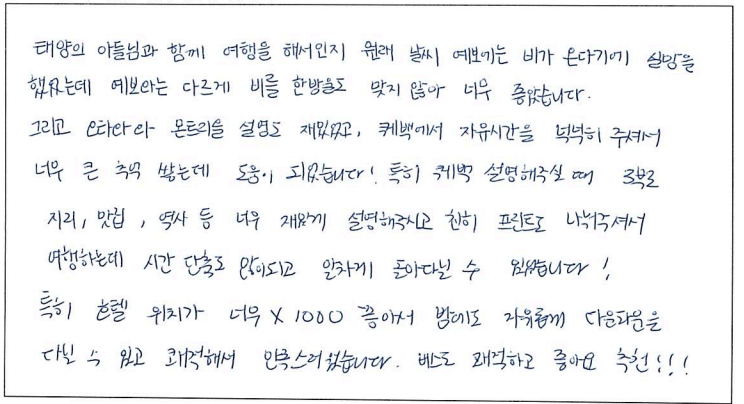 태양의 아들님과 함께 여행을 해서인지 원래 날씨 예보에는 비가 온다기에 실망을
했었는데 예보와는 다르게 비를 한방울도 맞지 않아 너무 좋았습니다.
그리고 오타와와 몬트리올 설명도 재밌었고, 퀘백에서 자유시간을 넉넉히 주셔서
너무 큰 추억 쌓는데 도움이 되었습니다! 특히 퀘벡 설명해주실 때 3부로
지리, 맛집, 역사 등 너무 재밌게 설명해주시고 친히 프린트도 나눠주셔서
여행하는데 시간 단축도 많이되고 알차게 돌아다닐 수 있었습니다!
특히 호텔 위치가 너무 X 1000 좋아서 밤에도 자유롭게 다운타운을
다닐 수 있고 쾌적해서 만족스러웠습니다. 버스도 쾌적하고 좋아요 추천!!!